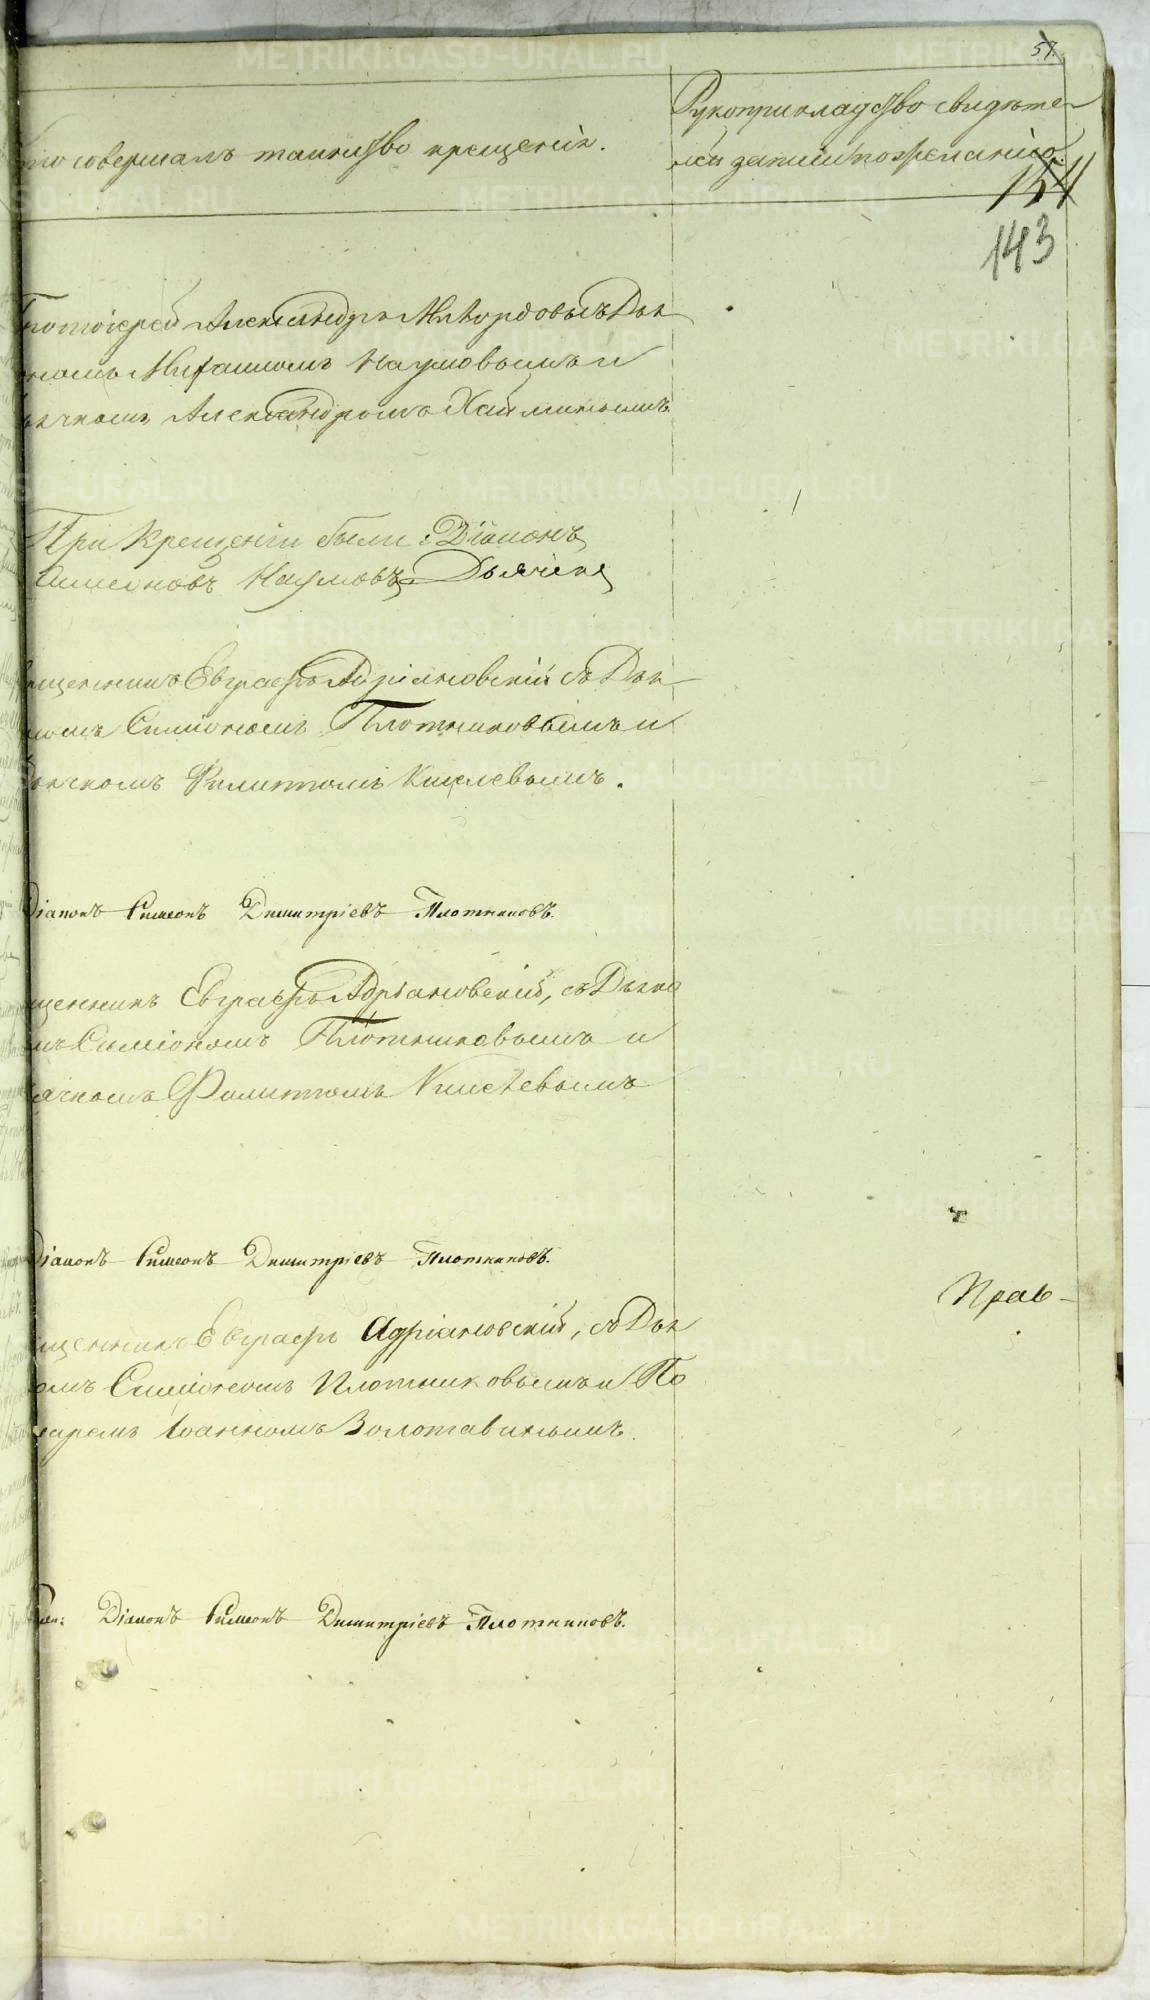 57.
Рукоприкладство свидѣте-
кто совершалъ таинство крещенія.
лей записи по желанію.
154
143
Протоіерей Александръ Милордовъ съ Діа
кономъ Михаиломъ Наумовымъ и
Дьячкомъ Александромъ Хаминымъ
При Крещеніи были: Діаконъ
Симеоновъ Наумовъ, Дьячекъ
щенникъ Евграфъ Адріановскій съ Діа
номъ Симіономъ Плотниковымъ и
Дьячкомъ Филиппомъ Киселевымъ.
Діаконъ Симеонъ Димитріевъ Плотниковъ.
щенникъ Евграфъ Адріановскій, съ Діако
мъ Симіономъ Плотниковымъ и
ячкомъ Филиппомъ Киселевымъ
Діаконъ Симеонъ Димитріевъ Плотниковъ.
Прав-
щенникъ Евграфъ Адріановскій, съ Діак
омъ Симіономъ Плотниковымъ и По
маремъ Іоанномъ Золотавинымъ.
Діаконъ Симеонъ Димитріевъ Плотниковъ.
METRIKI.GASO-URAL.RU